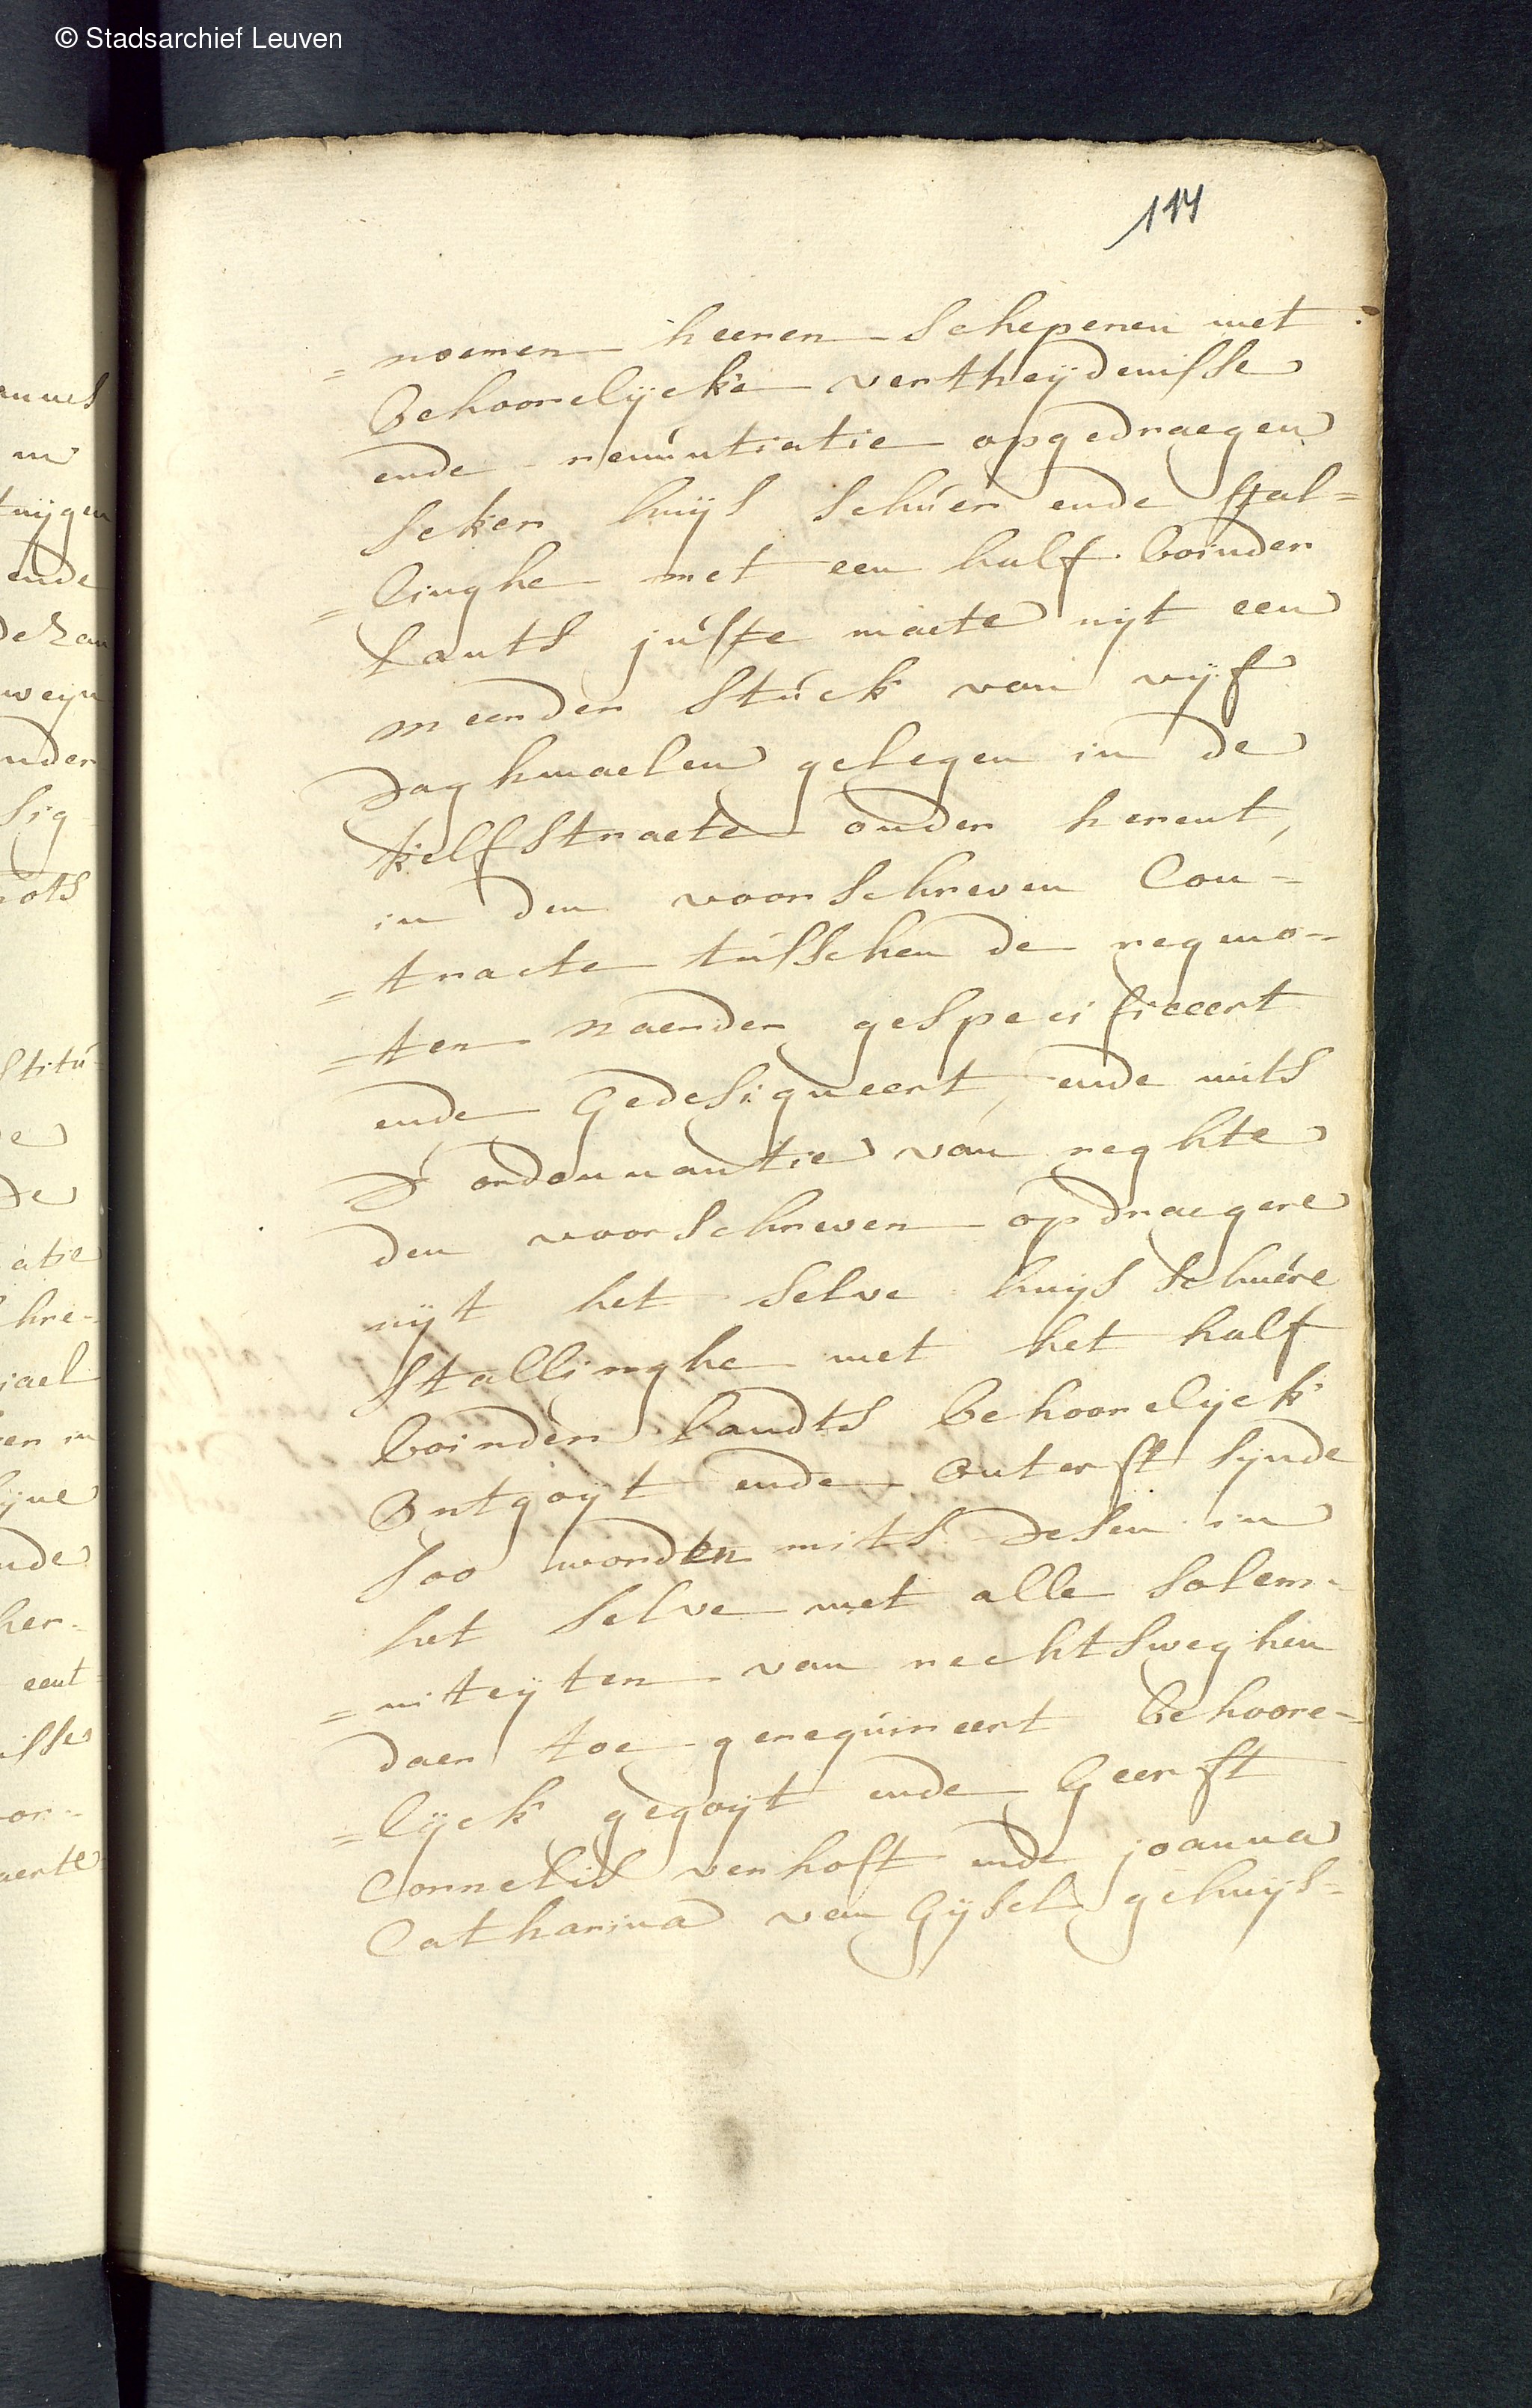 © Stadsarchief Leuven
114
= noemen heeren schepenen met
behoorelijcke vertheijdenisse
ende renuntiatie opgedraegen
seker huijs schuer ende stal=
=linghe met een half boinder
lants juste maete uijt een
meerder stuck van vijf
daghmaelen gelegen in de
kelfstraete onder herent,
in den voorschreven Con=
=tracte tusschen de regmo=
=ten naerder gespecificeert
ende Gedesigneert, ende mits
d'ordonnantie van reghte
den voorschreven opdraegere
uijt het selve huijs schuere
stallinghe met het half
boinder landts behoorelijck
Ontgoijt ende Onterft sijnde
soo worden mits desen in
het selve met alle solem=
=niteijten van rechtsweghen
daer toe gerequireert behoore=
=lijck gegoijt ende Geerft
Cornelis verhoft ende joanna
Catharina van Gijsel gehuijs=
annes
tuijgen
ende
weijn
nder
sig
stitu=
e
de
atie
hre=
jael
en in
nde
her=
eent=
isse
or=
aerte